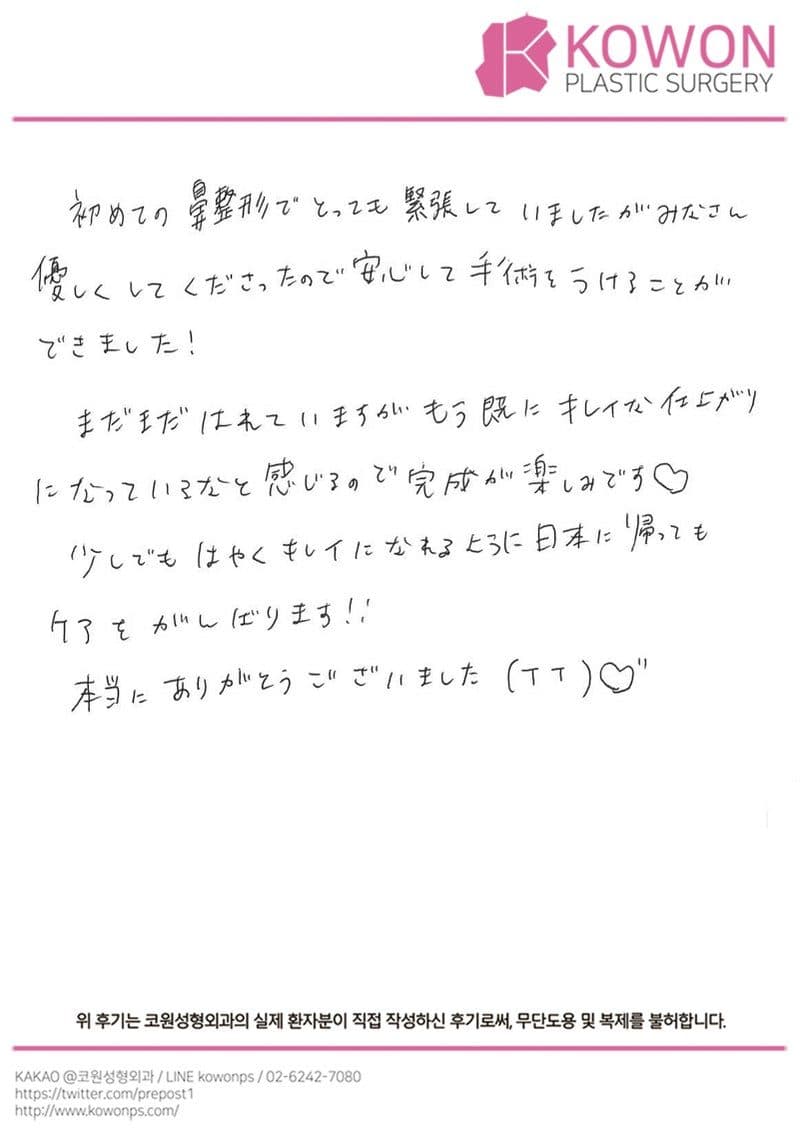 KOWON
PLASTIC SURGERY
初めての鼻整形でとっても緊張していましたがみなさん
優しくしてくださったので安心して手術をうけることが
できました！
まだまだはれていますがもう既にキレイな仕上がり
になっているなと感じるので完成が楽しみです♡
少しでもはやくキレイになれるように日本に帰っても
ケアをがんばります!!
本当にありがとうございました(TT)♡"
위 후기는 코원성형외과의 실제 환자분이 직접 작성하신 후기로써, 무단도용 및 복제를 불허합니다.
KAKAO @코원성형외과 / LINE kowonps / 02-6242-7080
https://twitter.com/prepost1
http://www.kowonps.com/